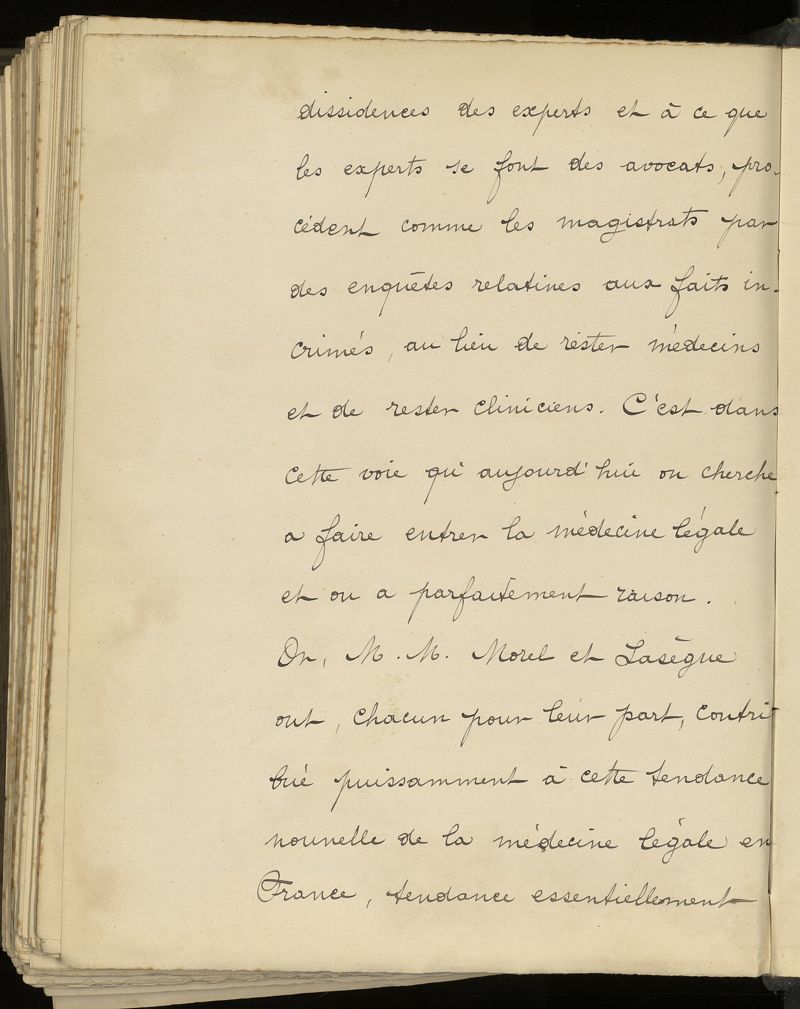 dissidences des experts et à ce que
les experts se font des avocats, pro-
cédent comme les magistrats par
des enquêtes relatives aux faits in-
crimés, au lieu de rester médecins
et de rester cliniciens. C'est dans
cette voie qu'aujourd'hui on cherche
a faire entrer la médecine légale
et on a parfaitement raison.
Or, M.M. Morel et Lasègue
ont, chacun pour leur part, contri
bué puissamment à cette tendance
nouvelle de la médecine légale en
France, tendance essentiellement